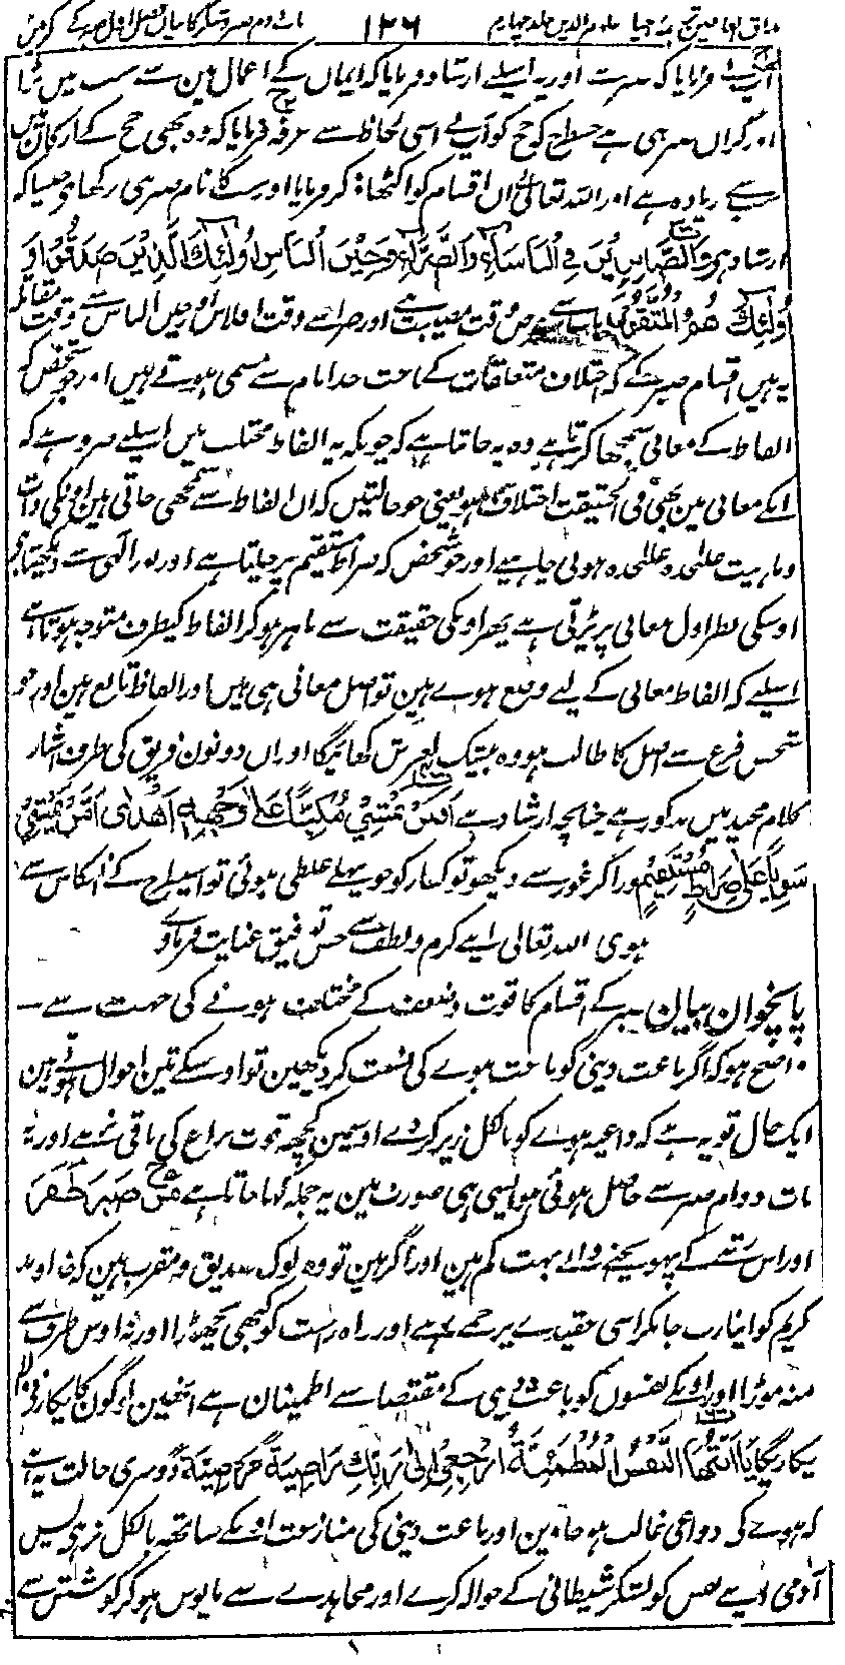 مذاق العارفین ترجمہ احیاء علوم الدین جلد چہارم ۱۲۶ باب دوم صبر و شکر کا بیان فصل اول صبر کے ذکر میں
آپ نے فرمایا کہ صبر ہے اور یہ اسلیے ارشاد فرمایا کہ ایمان کے اعمال مین سے سب میں
اور گراں صبر ہی ہے جسطرح کہ حج کو آپ نے اسی لحاظ سے عرفہ فرمایا کہ وہ بھی حج کے ارکان میں
سے زیادہ ہے اور اللہ تعالی نے ان اقسام کو اکٹھا ذکر فرمایا اور سب کا نام صبر ہی رکھا ہے جیسا کہ
ارشاد ہے وَالصَّابِرِیْنَ فِی الْبَأْسَاءِ وَالضَّرَّاءِ وَحِیْنَ الْبَأْسِ اُولٰئِکَ الَّذِیْنَ صَدَقُوْا وَ
اُولٰئِکَ هُمُ الْمُتَّقُوْنَ باساء سے وقت مصیبت ہے اور ضراء سے وقت افلاس اور حین الباس سے وقت مقاتلہ
یہ ہیں اقسام صبر کے کہ اختلاف متعلقات کے باعث جدا نام سے مسمی ہوتے ہیں اور جو شخص کہ
الفاظ کے معانی سمجھا کرتا ہے وہ یہ جانتا ہے کہ چونکہ یہ الفاظ مختلف ہیں اسلیے ضرور ہے کہ
انکے معانی مین بھی فی الحقیقت اختلاف ہو یعنی جو حالتیں کہ ان الفاظ سے سمجھی جاتی ہین اونکی ذات
و ماہیت علحدہ علحدہ ہونی چاہیے اور جو شخص کہ صراط مستقیم پر چلتا ہے اور نور الٰہی سے دیکھتا ہے
اوسکی نظر اول معانی پر پڑتی ہے پھر اونکی حقیقت سے ماہر ہو کر الفاظ کیطرف متوجہ ہوتا ہے
اسلیے کہ الفاظ معانی کے لیے وضع ہوے ہین تو اصل معانی ہی ہیں اور الفاظ تابع ہین اور جو
شخص فرع سے اصل کا طالب ہو وہ بیشک لغزش کھائیگا اور ان دونون فریق کی طرف اشارہ
کلام مجید میں مذکور ہے چنانچہ ارشاد ہے اَفَمَنْ یَّمْشِیْ مُکِبًّا عَلٰی وَجْهِهٖ اَهْدٰی اَمَّنْ یَّمْشِیْ
سَوِیًّا عَلٰی صِرَاطٍ مُّسْتَقِیْمٍ اور اگر غور سے دیکھو تو کفار کو جو پہلے غلطی ہوئی تو اسیطرح کے انعکاس سے
ہوی اللہ تعالی اپنے کرم و لطف سے حسن توفیق عنایت فرماوے
پانچوان بیان صبر کے اقسام کا قوت و ضعف کے مختلف ہونے کی جہت سے —
واضح ہو کہ اگر باعث دینی کو باعث ہوے کی نسبت کر دیکھین تو اوسکے تین احوال ہوتے ہین
ایک حال تو یہ ہے کہ داعیہ ہوے کو بالکل زیر کر دے اوسمین کچھ قوت نزاع کی باقی نرہے اور یہ
بات دوام صبر سے حاصل ہوتی ہے ایسی ہی صورت مین یہ جملہ کہا جاتا ہے مَنْ صَبَرَ ظَفَرَ
اور اس رتبے کے پہونچنے والے بہت کم ہین اور اگر ہین تو وہ لوگ صدیق و مقرب ہین کہ خداوند
کریم کو اپنا رب جانکر اسی عقیدے پر جمے رہے اور راہ راست کو کبھی نچھوڑا اور نہ اوس طرف سے
منہ موڑا اور اونکے نفسوں کو باعث دینی کے مقتضا سے اطمینان ہے انھین لوگون کا پکارنے والا
پکاریگا یَا اَیَّتُهَا النَّفْسُ الْمُطْمَئِنَّةُ ارْجِعِیْ اِلٰی رَبِّکِ رَاضِیَةً مَّرْضِیَّةً دوسری حالت یہ ہے
کہ ہوے کے دواعی غالب ہو جاوین اور باعث دینی کی منازعت اونکے ساتھ بالکل نرہے پس
آدمی اپنے نفس کو لشکر شیطانی کے حوالہ کرے اور مجاہدے سے مایوس ہو کر کوشش سے